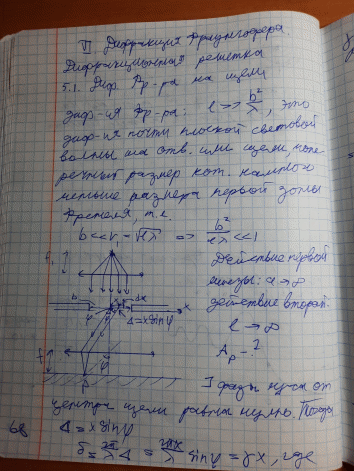 VI Дифракция Фраунгофера.
Дифракционная решетка
5.1. Диф. Фр-ра на щели
диф-ия Фр-ра: l >> b²/λ, это
диф-ия почти плоской световой
волны на отв. или щели, попе-
речный размер кот. намного
меньше размера первой зоны
Френеля, т.к.
b << r₁ = √lλ => b²/lλ << 1
Действие первой
линзы: a → ∞
b Δx x
действие второй:
φ Δ = x sinφ
l → ∞
A_p - ?
φ
I фаза из от
центра щели равна нулю. Тогда
68 Δ = x sinφ
δ = 2π/λ Δ = 2πx/λ sinφ = γx, где